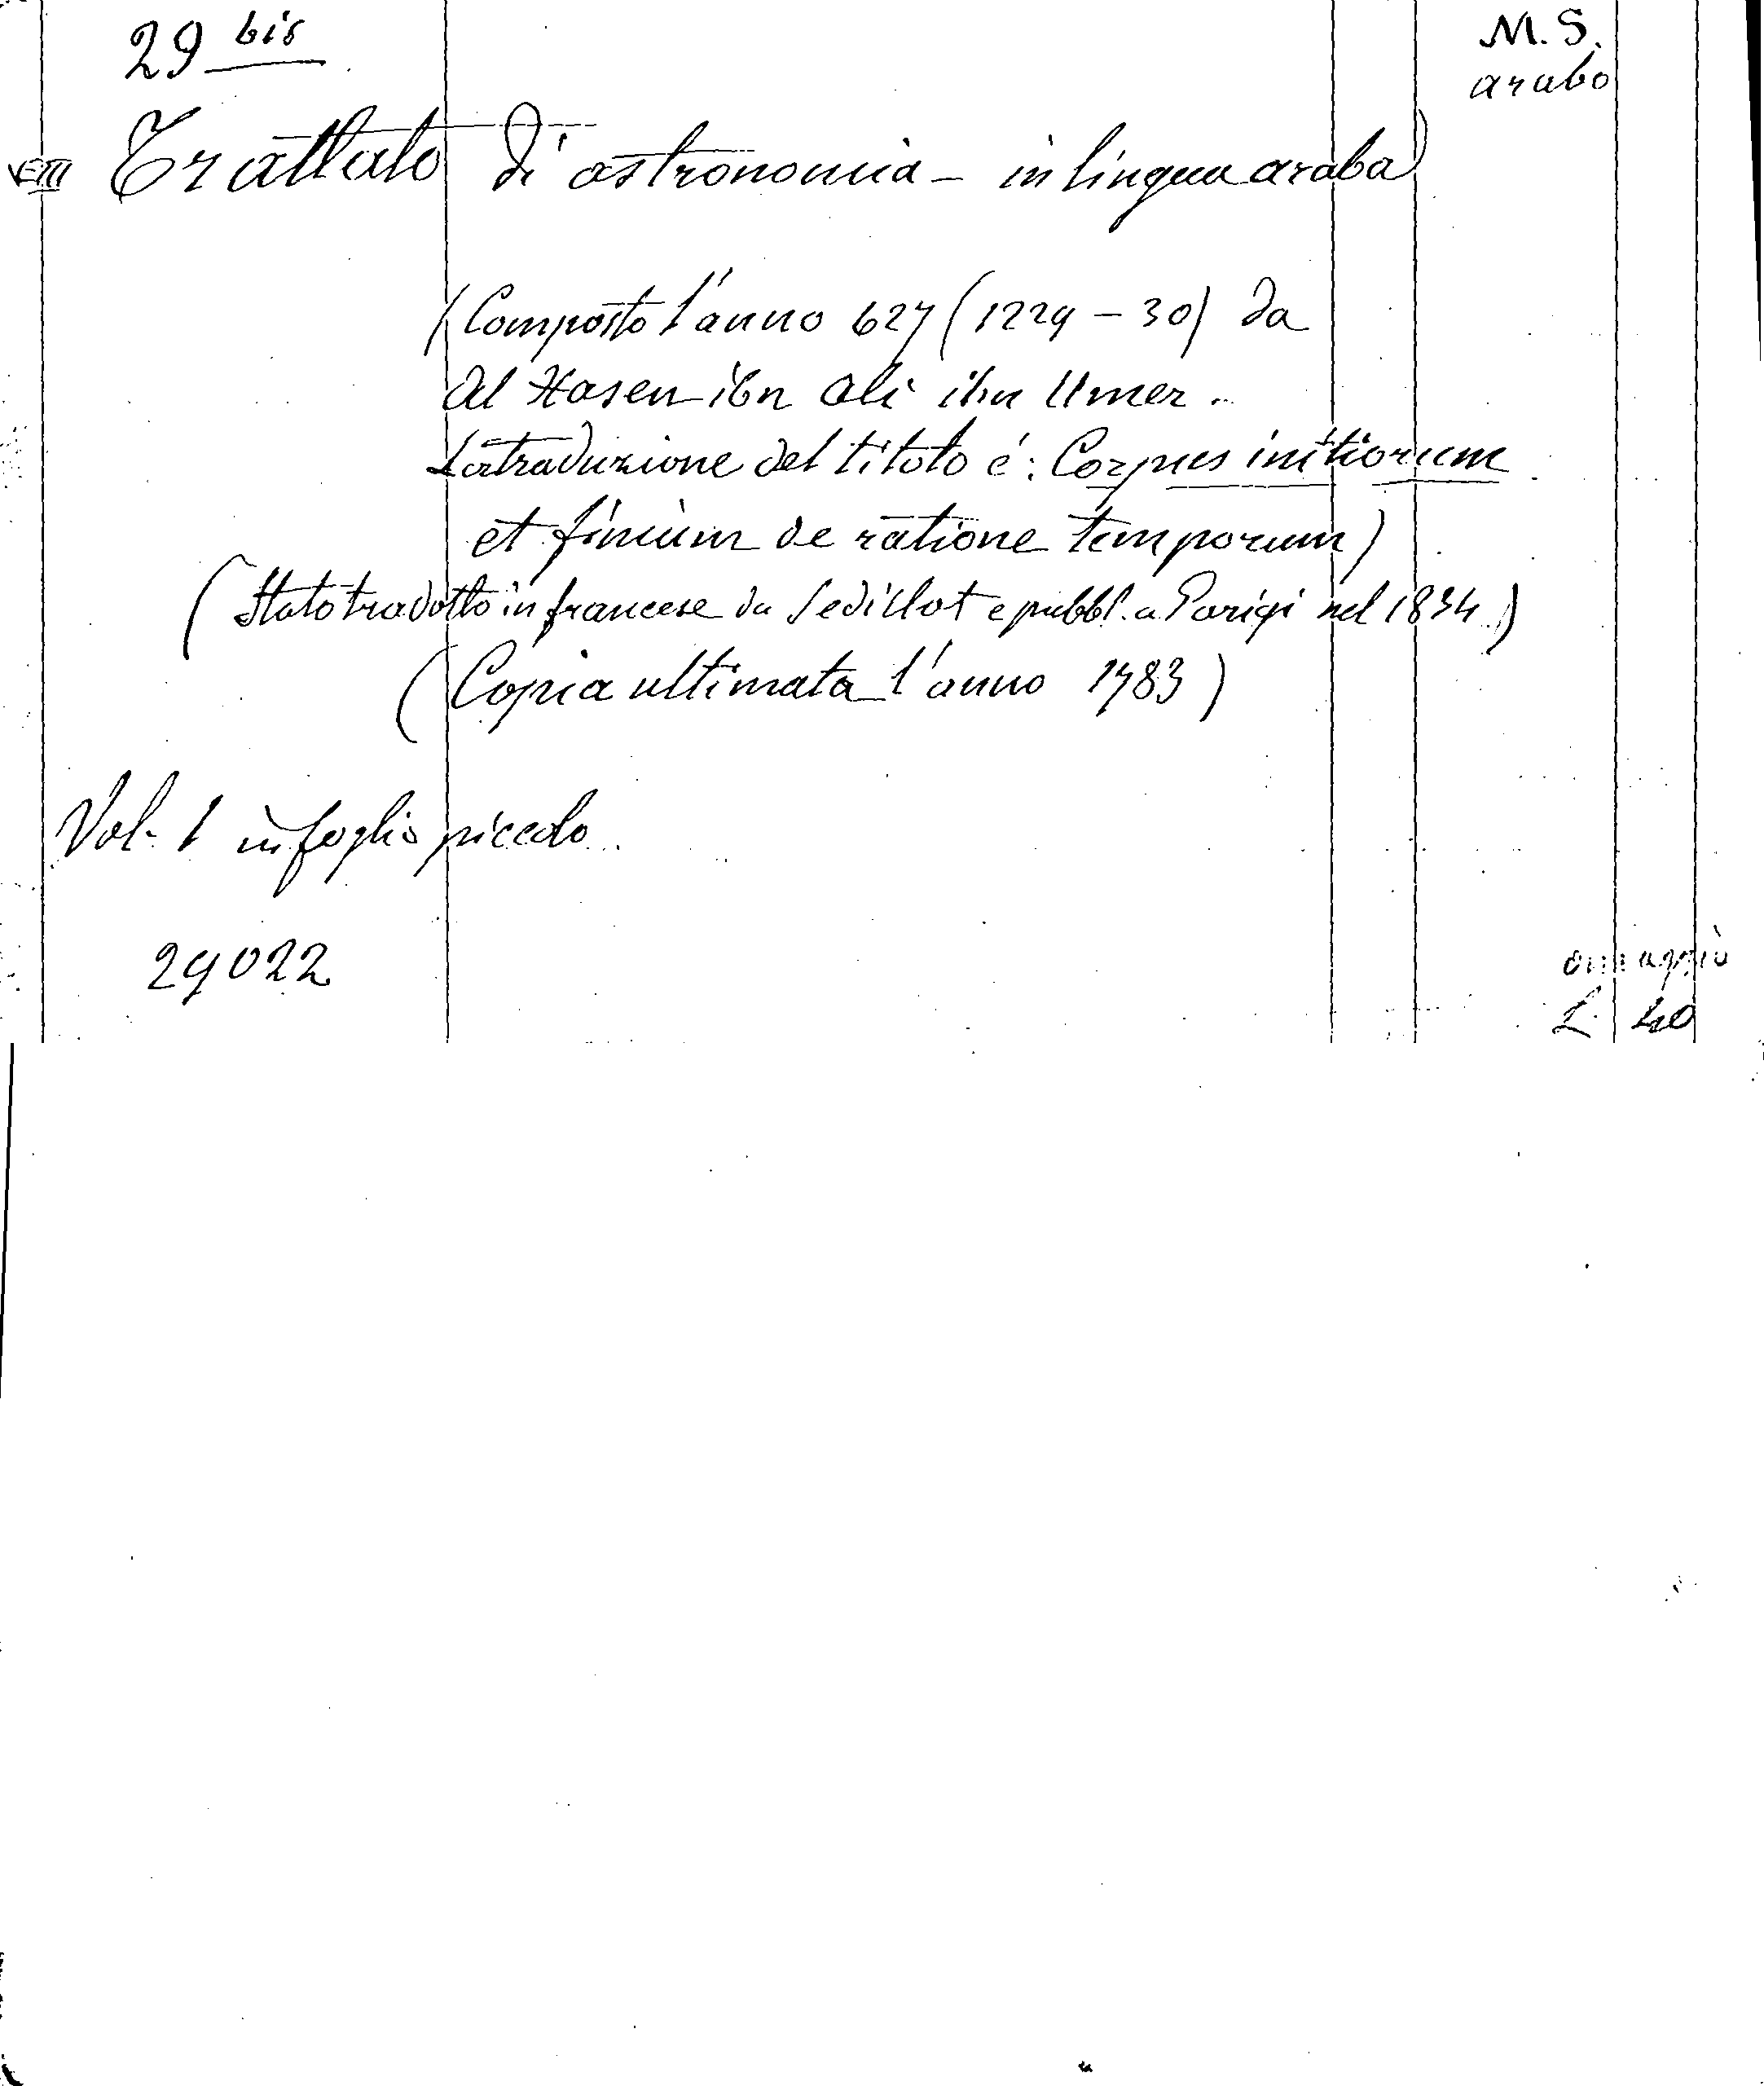 29 bis
M. S.
arabo
Trattato di astronomia - in lingua araba
(Composto l'anno 627 (1229-30) da
Al Hasen ibn Ali ibn Umer.
La traduzione del titolo é: Corpus initiorum
et finium de ratione temporum)
(Stato tradotto in francese da Sedillot e pubbl. a Parigi nel 1834)
(Copia ultimata l'anno 1783)
Vol. 1 in foglio piccolo
29022
omaggio
L. 40